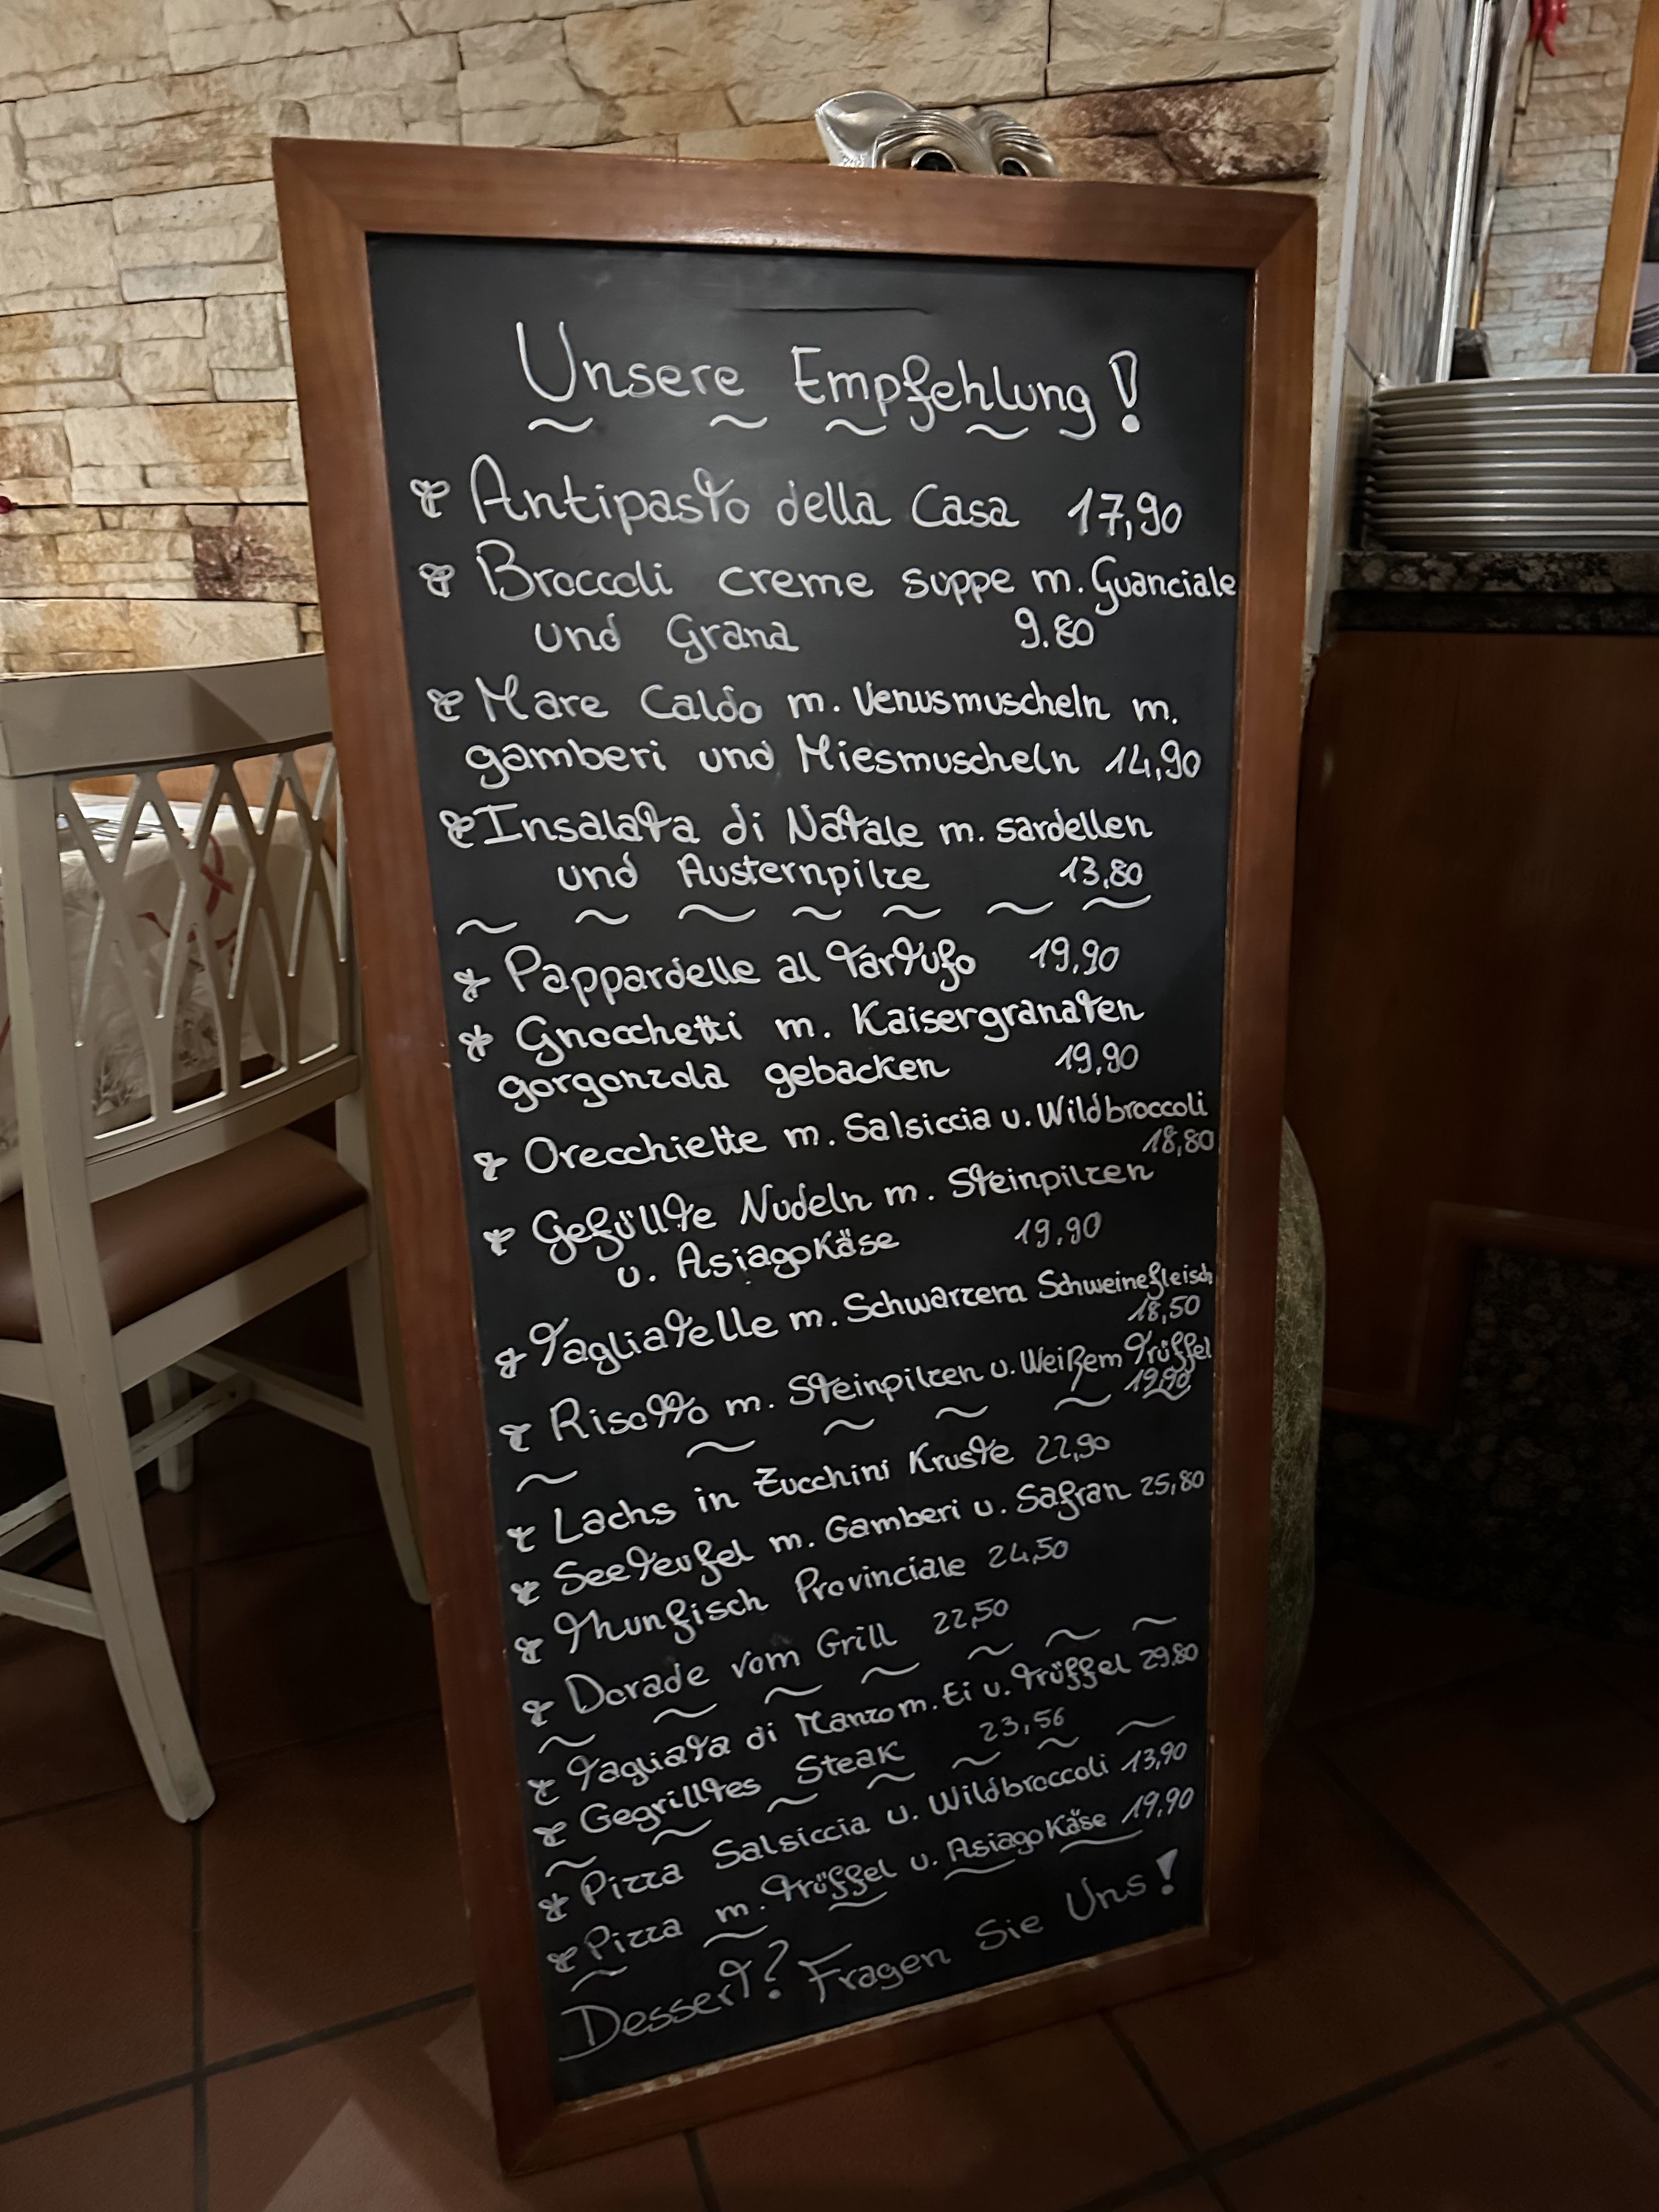 Unsere Empfehlung!
Antipasto della Casa 17,90
Broccoli creme suppe m. Guanciale
und Grana 9.80
Mare Caldo m. Venusmuscheln m.
gamberi und Miesmuscheln 14,90
Insalata di Natale m. sardellen
und Austernpilze 13,80
Pappardelle al Tartufo 19,90
Gnocchetti m. Kaisergranaten
gorgonzola gebacken 19,90
Orecchiette m. Salsiccia u. Wildbroccoli
18,80
Gefüllte Nudeln m. Steinpilzen
u. Asiago Käse 19,90
Tagliatelle m. Schwarzem Schweinefleisch
18,50
Risotto m. Steinpilzen u. Weißem Trüffel
19,90
Lachs in Zucchini Kruste 22,90
Seeteufel m. Gamberi u. Safran 25,80
Thunfisch Provinciale 24,50
Dorade vom Grill 22,50
Tagliata di Manzo m. Ei u. Trüffel 29.80
Gegrilltes Steak 23,56
Pizza Salsiccia u. Wildbroccoli 13,90
Pizza m. Trüffel u. Asiago Käse 19,90
Dessert? Fragen Sie Uns!